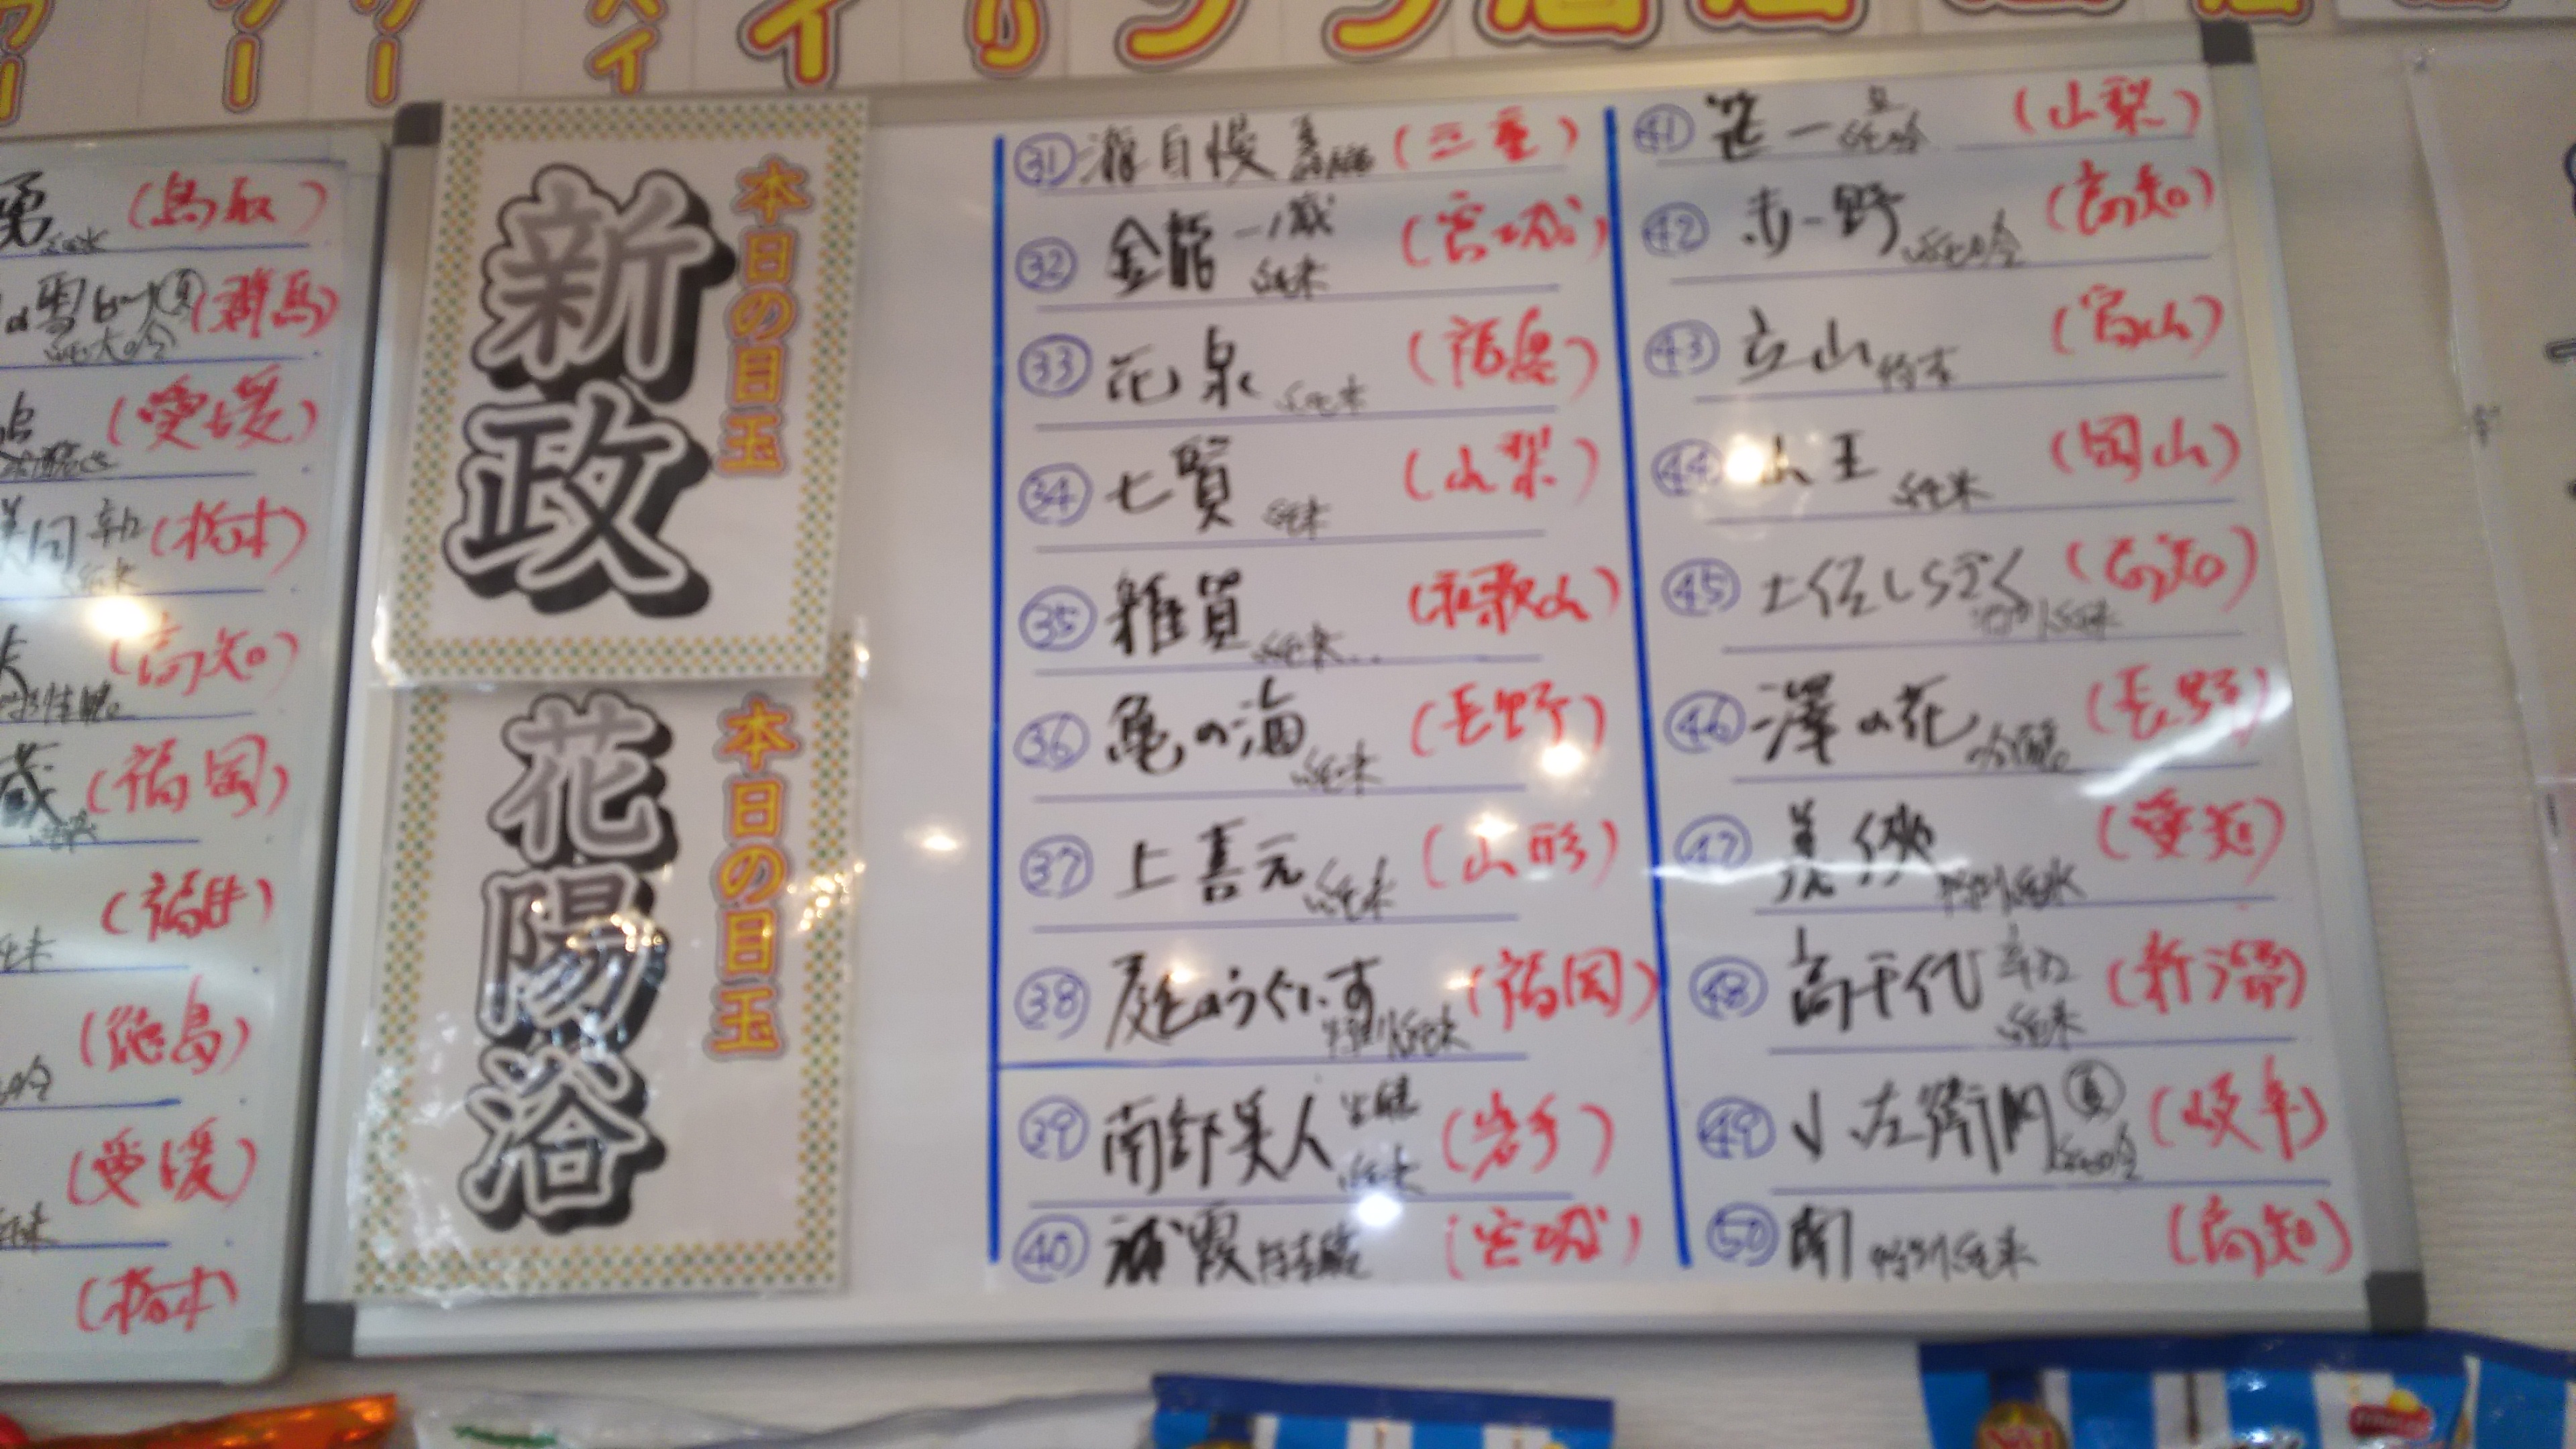 (鳥取)
(群馬)
純大吟
(愛媛)
(栃木)
(高知)
(福岡)
(福井)
(徳島)
(愛媛)
(栃木)
本日の目玉
新政
本日の目玉
花陽浴
㉛ 瀧自慢 (三重)
㉜ 金龍 一ノ蔵 純米 (宮城)
㉝ 花泉 純米 (福島)
㉞ 七賢 純米 (山梨)
㉟ 雑賀 純米 (和歌山)
㊱ 亀の海 純米 (長野)
㊲ 上喜元 純米 (山形)
㊳ 庭のうぐいす 特別純米 (福岡)
㊴ 南部美人 純米 (岩手)
㊵ 浦霞 (宮城)
㊶ 笹一 純吟 (山梨)
㊷ 赤野 純吟 (高知)
㊸ 立山 (富山)
㊹ 山王 純米 (岡山)
㊺ 土佐しらぎく 特別純米 (高知)
㊻ 澤の花 吟醸 (長野)
㊼ 特別純米 (愛知)
㊽ 高千代 辛口 純米 (新潟)
㊾ 小左衛門 純吟 (岐阜)
㊿ 南 特別純米 (高知)